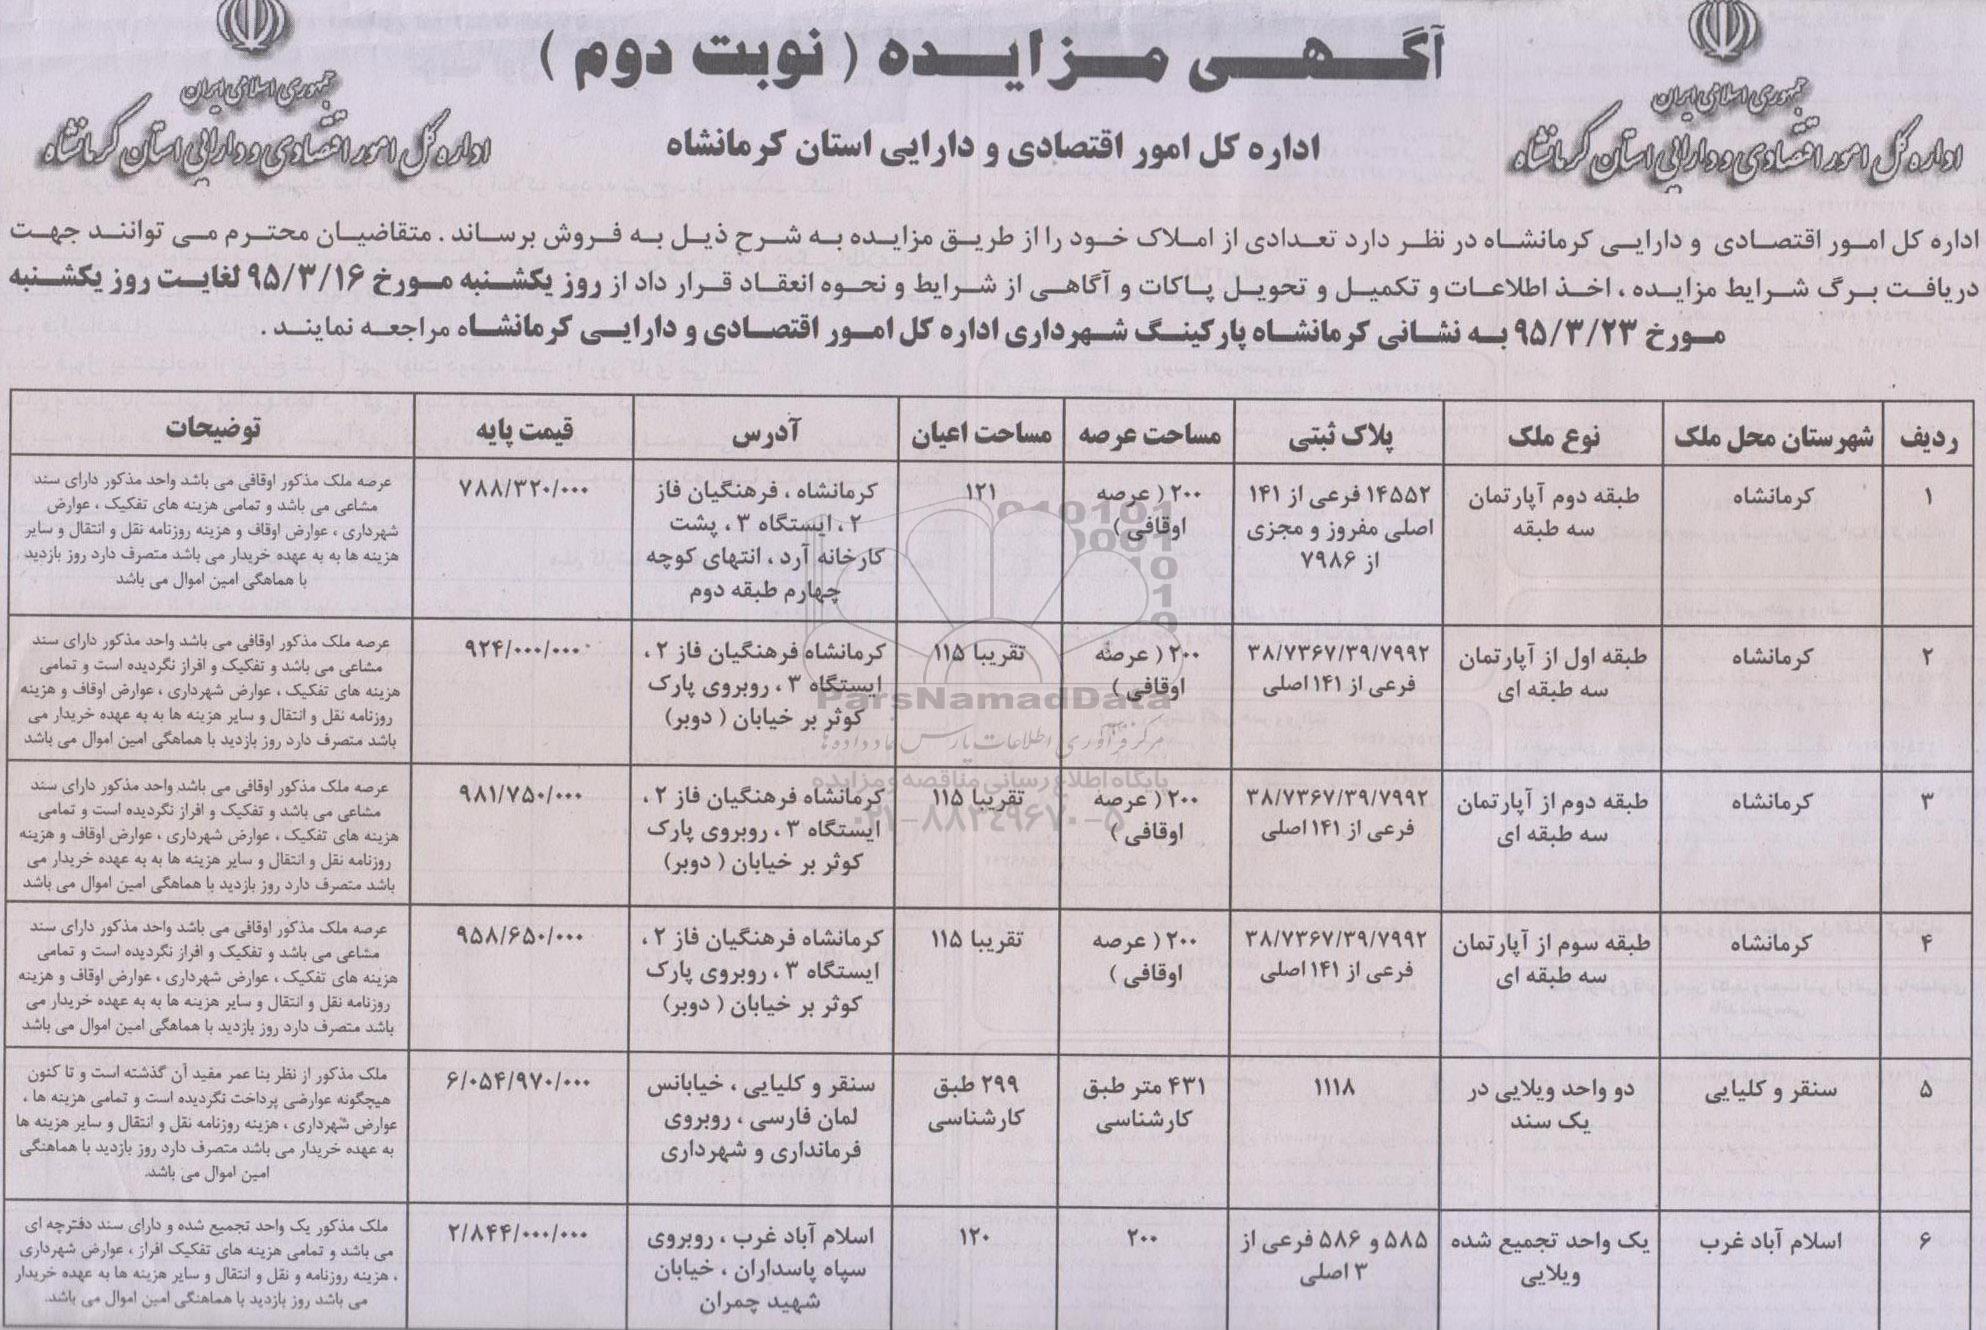 آگهی مزایده ( نوبت دوم )
جمهوری اسلامی ایران
اداره کل امور اقتصادی و دارایی استان کرمانشاه
جمهوری اسلامی ایران
اداره کل امور اقتصادی و دارایی استان کرمانشاه
اداره کل امور اقتصادی و دارایی استان کرمانشاه
اداره کل امور اقتصادی و دارایی کرمانشاه در نظر دارد تعدادی از املاک خود را از طریق مزایده به شرح ذیل به فروش برساند . متقاضیان محترم می توانند جهت
دریافت برگ شرایط مزایده ، اخذ اطلاعات و تکمیل و تحویل پاکات و آگاهی از شرایط و نحوه انعقاد قرار داد از روز یکشنبه مورخ ۹۵/۳/۱۶ لغایت روز یکشنبه
مورخ ۹۵/۳/۲۳ به نشانی کرمانشاه پارکینگ شهرداری اداره کل امور اقتصادی و دارایی کرمانشاه مراجعه نمایند .
ردیف شهرستان محل ملک نوع ملک پلاک ثبتی مساحت عرصه مساحت اعیان آدرس قیمت پایه توضیحات
۱
کرمانشاه
طبقه دوم آپارتمان
سه طبقه
۱۴۵۵۲ فرعی از ۱۴۱
اصلی مفروز و مجزی
از ۷۹۸۶
۲۰۰ ( عرصه
اوقافی )
۱۲۱
کرمانشاه ، فرهنگیان فاز
۲ ، ایستگاه ۳ ، پشت
کارخانه آرد ، انتهای کوچه
چهارم طبقه دوم
۷۸۸/۳۲۰/۰۰۰
عرصه ملک مذکور اوقافی می باشد واحد مذکور دارای سند
مشاعی می باشد و تمامی هزینه های تفکیک ، عوارض
شهرداری ، عوارض اوقاف و هزینه روزنامه نقل و انتقال و سایر
هزینه ها به به عهده خریدار می باشد متصرف دارد روز بازدید
با هماهگی امین اموال می باشد
۲
کرمانشاه
طبقه اول از آپارتمان
سه طبقه ای
۳۸/۷۳۶۷/۳۹/۷۹۹۲
فرعی از ۱۴۱ اصلی
۲۰۰ ( عرصه
اوقافی )
تقریبا ۱۱۵
کرمانشاه فرهنگیان فاز ۲ ،
ایستگاه ۳ ، روبروی پارک
کوثر بر خیابان ( دوبر)
۹۲۴/۰۰۰/۰۰۰
عرصه ملک مذکور اوقافی می باشد واحد مذکور دارای سند
مشاعی می باشد و تفکیک و افراز نگردیده است و تمامی
هزینه های تفکیک ، عوارض شهرداری ، عوارض اوقاف و هزینه
روزنامه نقل و انتقال و سایر هزینه ها به به عهده خریدار می
باشد متصرف دارد روز بازدید با هماهگی امین اموال می باشد
۳
کرمانشاه
طبقه دوم از آپارتمان
سه طبقه ای
۳۸/۷۳۶۷/۳۹/۷۹۹۲
فرعی از ۱۴۱ اصلی
۲۰۰ ( عرصه
اوقافی )
تقریبا ۱۱۵
کرمانشاه فرهنگیان فاز ۲ ،
ایستگاه ۳ ، روبروی پارک
کوثر بر خیابان ( دوبر)
۹۸۱/۷۵۰/۰۰۰
عرصه ملک مذکور اوقافی می باشد واحد مذکور دارای سند
مشاعی می باشد و تفکیک و افراز نگردیده است و تمامی
هزینه های تفکیک ، عوارض شهرداری ، عوارض اوقاف و هزینه
روزنامه نقل و انتقال و سایر هزینه ها به به عهده خریدار می
باشد متصرف دارد روز بازدید با هماهگی امین اموال می باشد
۴
کرمانشاه
طبقه سوم از آپارتمان
سه طبقه ای
۳۸/۷۳۶۷/۳۹/۷۹۹۲
فرعی از ۱۴۱ اصلی
۲۰۰ ( عرصه
اوقافی )
تقریبا ۱۱۵
کرمانشاه فرهنگیان فاز ۲ ،
ایستگاه ۳ ، روبروی پارک
کوثر بر خیابان ( دوبر)
۹۵۸/۶۵۰/۰۰۰
عرصه ملک مذکور اوقافی می باشد واحد مذکور دارای سند
مشاعی می باشد و تفکیک و افراز نگردیده است و تمامی
هزینه های تفکیک ، عوارض شهرداری ، عوارض اوقاف و هزینه
روزنامه نقل و انتقال و سایر هزینه ها به به عهده خریدار می
باشد متصرف دارد روز بازدید با هماهگی امین اموال می باشد
۵
سنقر و کلیایی
دو واحد ویلایی در
یک سند
۱۱۱۸
۴۳۱ متر طبق
کارشناسی
۲۹۹ طبق
کارشناسی
سنقر و کلیایی ، خیابانس
لمان فارسی ، روبروی
فرمانداری و شهرداری
۶/۰۵۴/۹۷۰/۰۰۰
ملک مذکور از نظر بنا عمر مفید آن گذشته است و تا کنون
هیچگونه عوارضی پرداخت نگردیده است و تمامی هزینه ها ،
عوارض شهرداری ، هزینه روزنامه نقل و انتقال و سایر هزینه ها
به عهده خریدار می باشد متصرف دارد روز بازدید با هماهنگی
امین اموال می باشد.
۶
اسلام آباد غرب
یک واحد تجمیع شده
ویلایی
۵۸۵ و ۵۸۶ فرعی از
۳ اصلی
۲۰۰
۱۲۰
اسلام آباد غرب ، روبروی
سپاه پاسداران ، خیابان
شهید چمران
۲/۸۴۴/۰۰۰/۰۰۰
ملک مذکور یک واحد تجمیع شده و دارای سند دفترچه ای
می باشد و تمامی هزینه های تفکیک افراز ، عوارض شهرداری
، هزینه روزنامه و نقل و انتقال و سایر هزینه ها به عهده خریدار
می باشد روز بازدید با هماهنگی امین اموال می باشد.
ParsNamadData
مرکز فرآوری اطلاعات پارس نماد داده ها
پایگاه اطلاع رسانی مناقصه و مزایده
۰۲۱-۸۸۳۴۹۶۷۰-۵